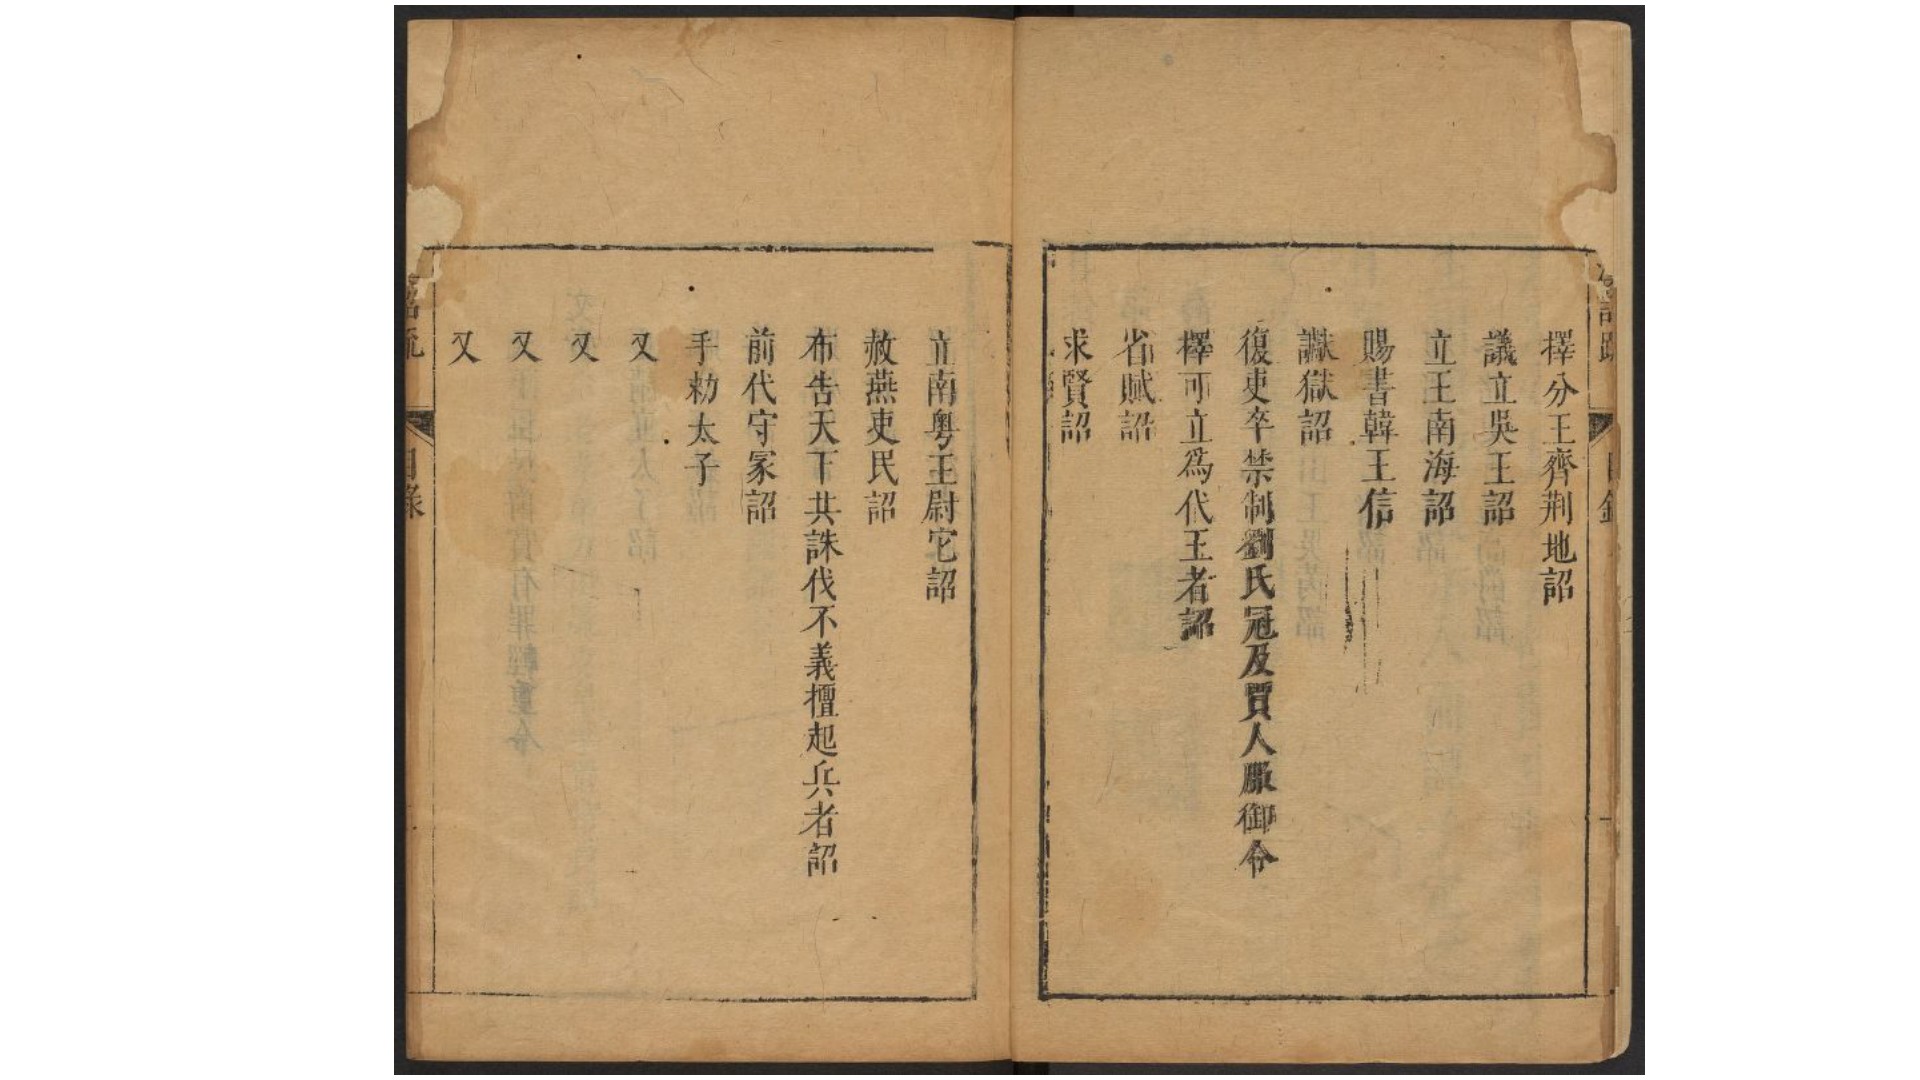 擇分王齊荆地詔
議立吳王詔
立王南海詔
賜書韓王信
讞獄詔
復吏卒禁制劉氏冠及賈人服御令
擇可立爲代王者詔
省賦詔
求賢詔
立南粤王尉它詔
赦燕吏民詔
布告天下共誅伐不義擅起兵者詔
前代守冢詔
手勑太子
又
又
又
又
目錄